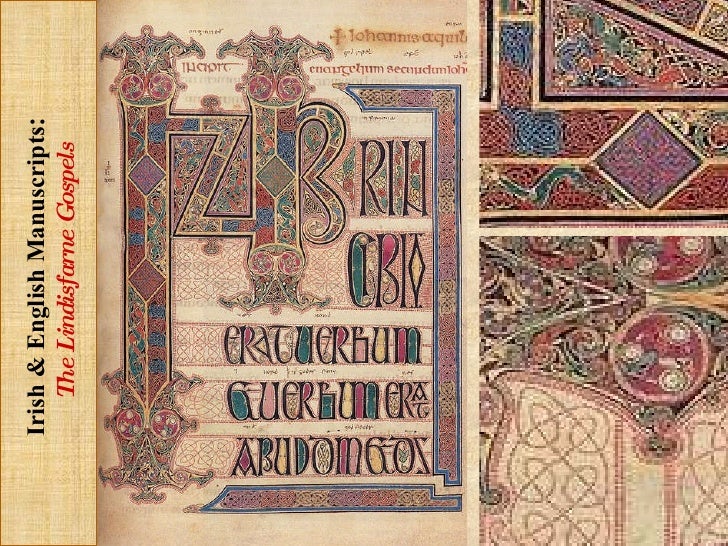 Irish & English Manuscripts:
The Lindisfarne Gospels
+ Iohannis aquil
incipit
euangelium secundum ioh
INPRIN
CIPIO
ERATUERBUM
&UERBUMERAT
APUDDM&DS